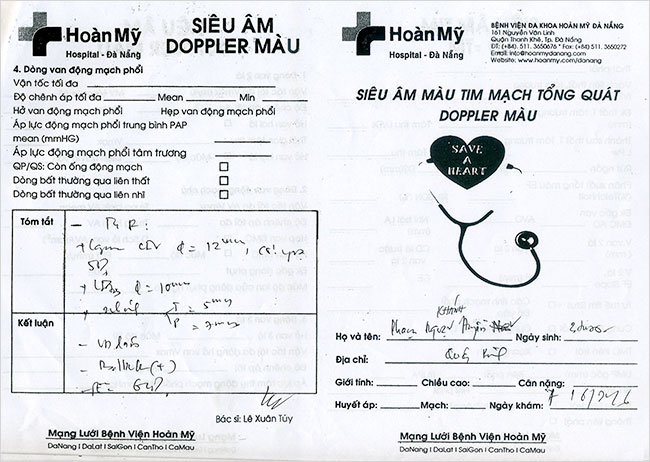 Hoàn Mỹ
Hospital - Đà Nẵng
SIÊU ÂM
DOPPLER MÀU
4. Dòng van động mạch phổi
Vận tốc tối đa
Độ chênh áp tối đa Mean Min
Hở van động mạch phổi Hẹp van động mạch phổi
Áp lực động mạch phổi trung bình PAP
mean (mmHG)
Áp lực động mạch phổi tâm trương
QP/QS: Còn ống động mạch
Dòng bất thường qua liên thất
Dòng bất thường qua liên nhĩ
Tóm tắt
= 12mm
= 10mm
T = 5mm
P = 7mm
Kết luận
(+)
Bác sĩ: Lê Xuân Túy
Mạng Lưới Bệnh Viện Hoàn Mỹ
DaNang I DaLat I SaiGon I CanTho I CaMau
Hoàn Mỹ
Hospital - Đà Nẵng
BỆNH VIỆN ĐA KHOA HOÀN MỸ ĐÀ NẴNG
161 Nguyễn Văn Linh
Quận Thanh Khê, Tp. Đà Nẵng
ĐT: (+84). 511. 3650676 * Fax: (+84) 511. 3650272
Email: info@hoanmydanang.com
Website: www.hoanmy.com/danang
SIÊU ÂM MÀU TIM MẠCH TỔNG QUÁT
DOPPLER MÀU
SAVE
A
HEART
KHÁNH
Họ và tên: Phạm Ngọc Huyền Ngày sinh:
Địa chỉ:
Giới tính: Chiều cao: Cân nặng:
Huyết áp: Mạch: Ngày khám:
Mạng Lưới Bệnh Viện Hoàn Mỹ
DaNang I DaLat I SaiGon I CanTho I CaMau